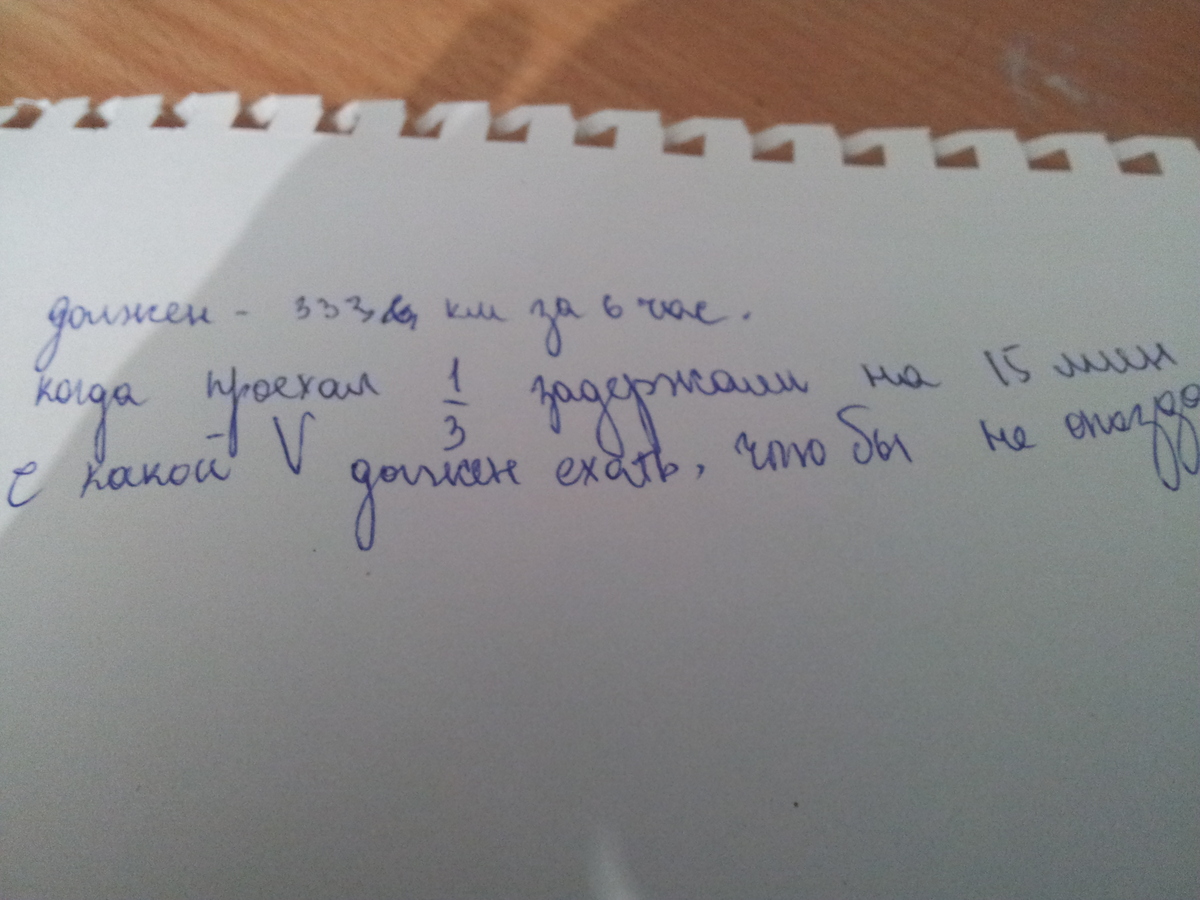 должен - 333, км за 6 час.
когда проехал 1/3 задержали на 15 мин
с какой V должен ехать, что бы не опозда